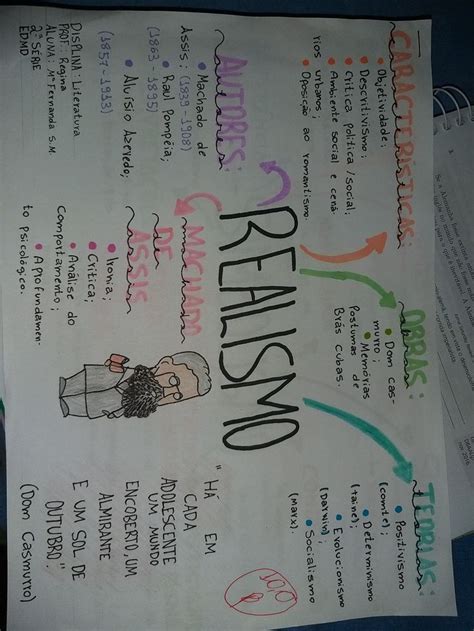 REALISMO
CARACTERÍSTICAS:
• Objetividade;
• Descritivismo;
• Crítica política/social;
• Ambiente social e cená-
rios urbanos;
• Oposição ao romantismo.
OBRAS:
• Dom Cas-
murro;
• Memórias
Póstumas de
Brás Cubas.
TEORIAS:
• Positivismo
(comte);
• Determinismo
(taine);
• Evolucionismo
(Darwin);
• Socialismo
(marx).
AUTORES:
• Machado de
Assis: (1839-1908)
• Raul Pompéia;
(1863-1895)
• Aluísio Azevedo;
(1857-1913)
MACHADO
DE
ASSIS
• Ironia;
• Crítica;
• Análise do
comportamento;
• Aprofundamen-
to psicológico.
"HÁ EM
CADA
ADOLESCENTE
UM MUNDO
ENCOBERTO, UM
ALMIRANTE
E UM SOL DE
OUTUBRO."
(Dom Casmurro)
10,0
DISPLINA: Literatura
PROF: Regina
ALUNA: Mª Fernanda S.M
2ª SÉRIE
EDMD